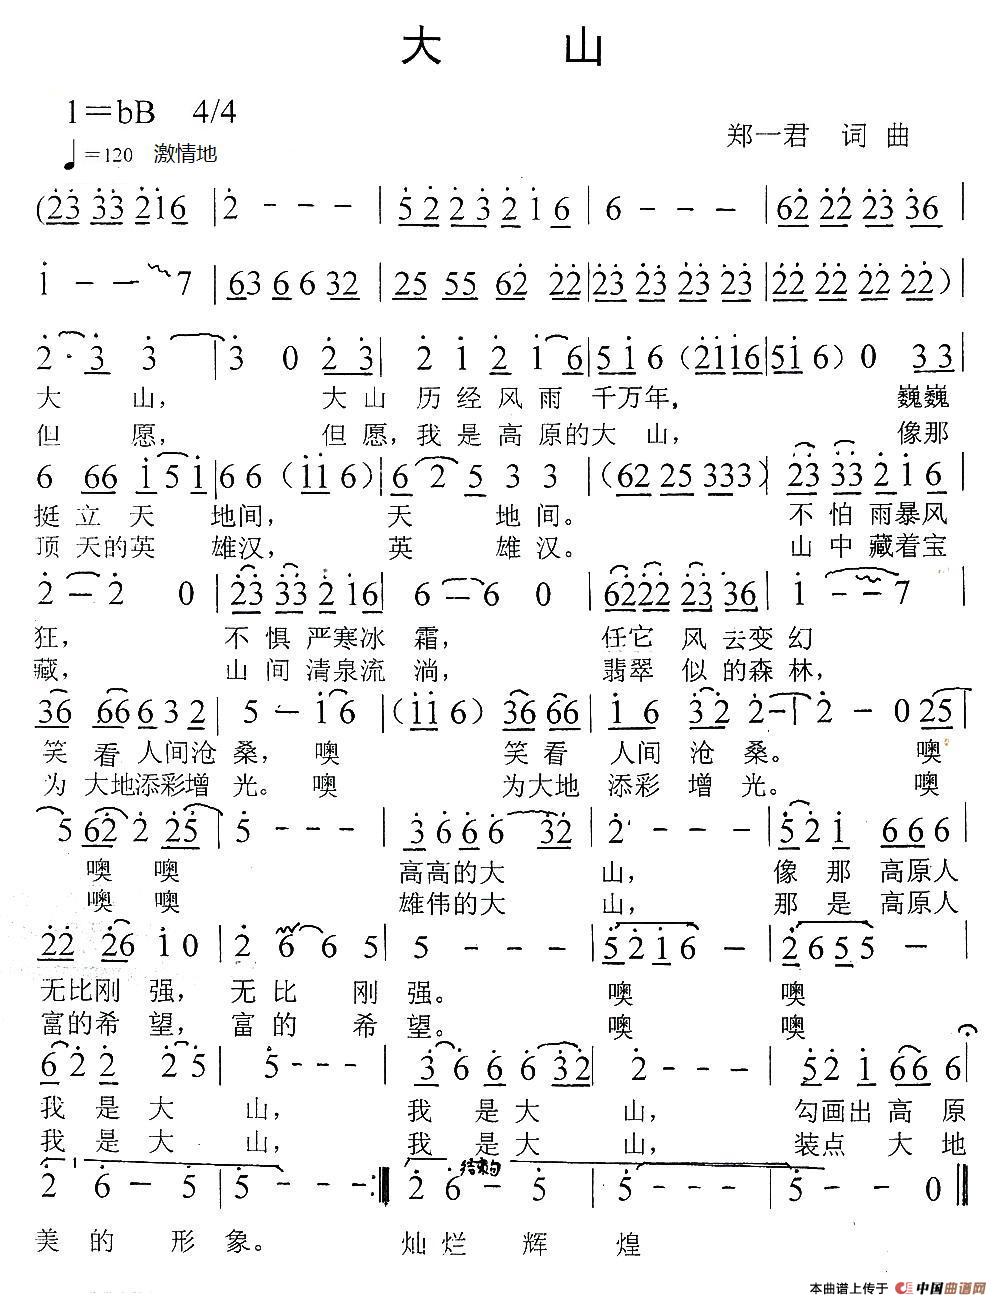 大 山
1=bB 4/4
♩=120 激情地
郑一君 词 曲
(23 33 216 | 2 - - - | 5 2 2 3 2 1 6 | 6 - - - | 62 22 23 36 |
1 - - 7 | 63 6 6 32 | 25 55 62 22 | 23 23 23 23 | 22 22 22 22) |
2 · 3 3 | 3 0 2 3 | 2 1 2 1 6 | 5 1 6 (2116 | 51 6) 0 3 3 |
大 山, 大 山 历 经 风 雨 千万年, 巍巍
但 愿, 但 愿, 我 是 高 原的大 山, 像那
6 66 1 5 1 | 6 6 (11 6) | 6 2 5 3 3 | (62 25 333) | 23 33 2 1 6 |
挺 立 天 地间, 天 地 间。 不 怕 雨暴风
顶 天的英 雄汉, 英 雄 汉。 山 中 藏着宝
2 - 2 0 | 23 33 2 16 | 6 - 6 0 | 6222 23 36 | 1 - - 7 |
狂, 不 惧 严寒冰 霜, 任它 风 云变 幻
藏, 山 间 清泉流 淌, 翡翠 似 的森 林,
36 66 6 3 2 | 5 - 1 6 | (11 6) 36 66 | 1 6 32 2-1 | 2 - 0 25 |
笑 看 人间沧 桑, 噢 笑 看 人间 沧 桑。 噢
为 大地添彩增 光。 噢 为大地 添彩 增 光。 噢
5 62 2 25 | 5 - - - | 3 6 6 6 32 | 2 - - - | 5 2 1 6 6 6 |
噢 噢 高高的大 山, 像 那 高原人
噢 噢 雄伟的大 山, 那 是 高原人
22 26 1 0 | 2 6 6 5 | 5 - - - | 5 2 1 6 - | 2 6 5 5 - |
无比刚 强, 无 比 刚 强。 噢 噢
富的希 望, 富 的 希 望。 噢 噢
6 2 2 2 5 | 5 - - - | 3 6 6 6 3 2 | 2 - - - | 5 2 1 66 6 |
我 是 大 山, 我 是 大 山, 勾画出 高 原
我 是 大 山, 我 是 大 山, 装点 大 地
2 6 - 5 | 5 - - - :‖ 2 6 结束句 - 5 | 5 - - - | 5 - - 0 ‖
美 的 形 象。 灿 烂 辉 煌
本曲谱上传于 中国曲谱网